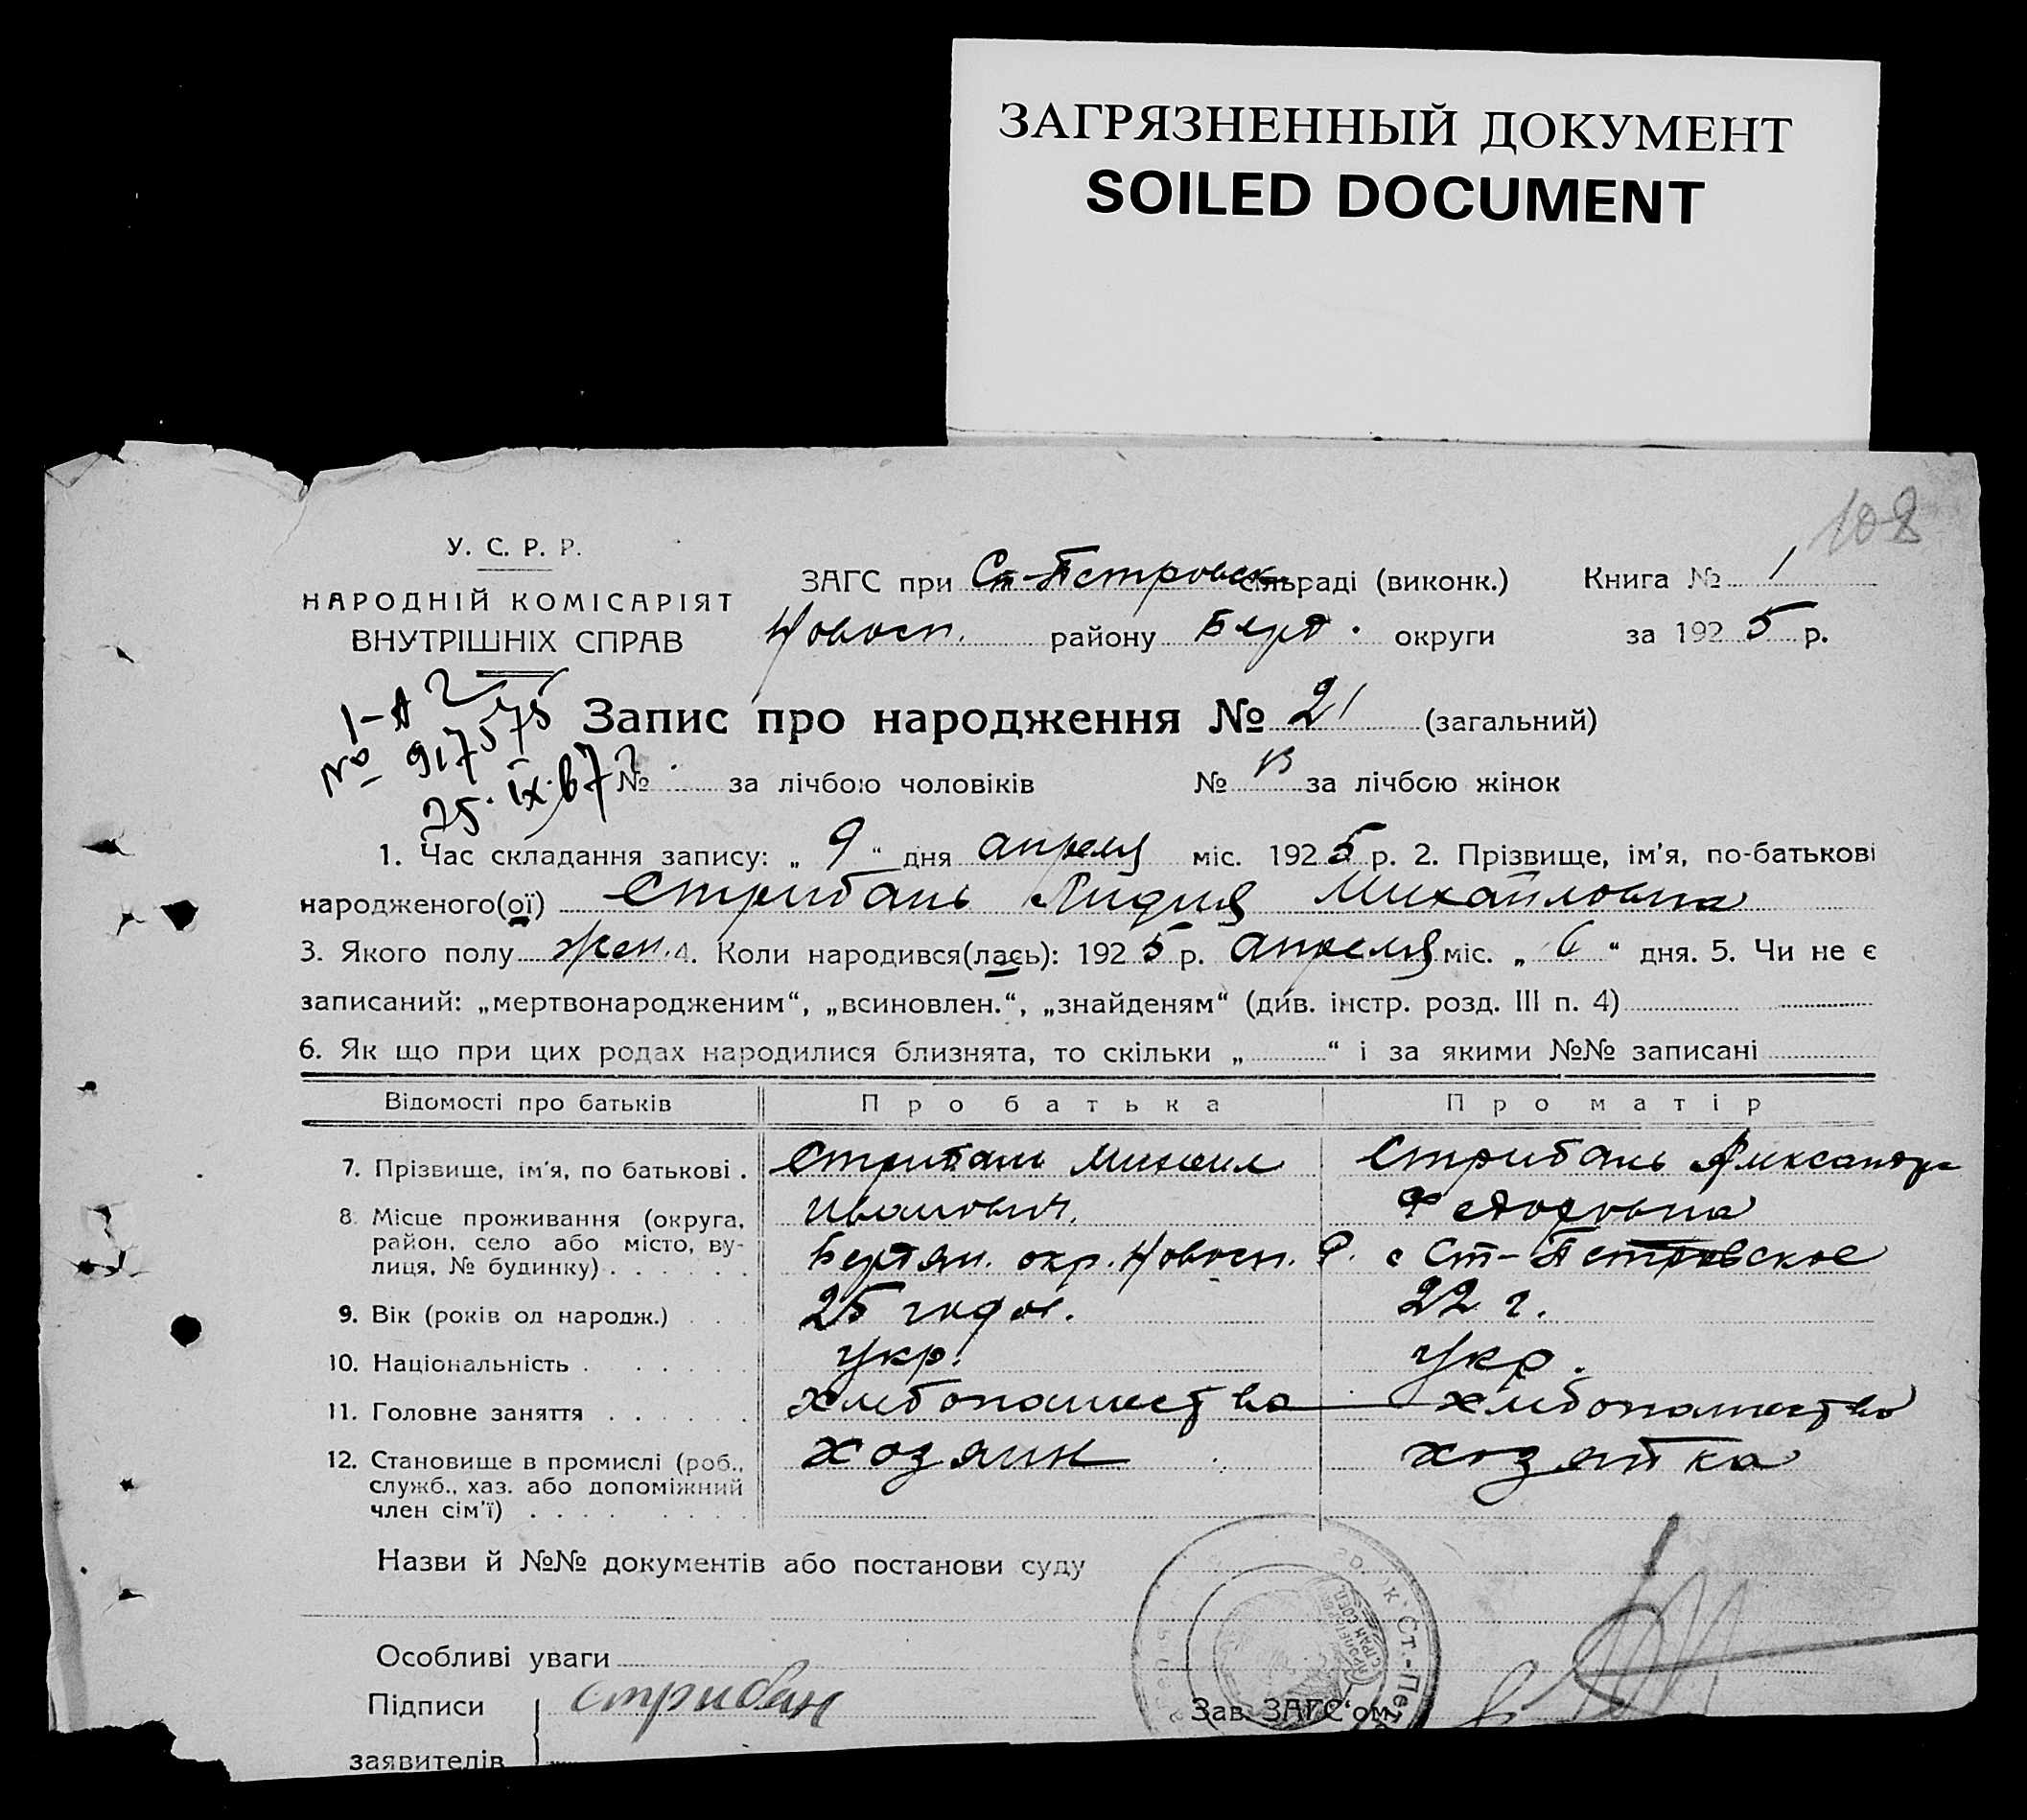 ЗАГРЯЗНЕННЫЙ ДОКУМЕНТ
SOILED DOCUMENT
108
У. С. Р. Р.
НАРОДНІЙ КОМІСАРІЯТ
ВНУТРІШНІХ СПРАВ
ЗАГС при Ст-Петровск сільраді (виконк.) Книга № 1
Новосп. району Берд. округи за 1925 р.
1-А
№ 917575
25.IX.67
Запис про народження № 21 (загальний)
№ за лічбою чоловіків № 13 за лічбою жінок
1. Час складання запису: „ 9 “ дня апреля міс. 1925 р. 2. Прізвище, ім'я, по-батькові
народженого(ої) Стрибань Лидия Михайловна
3. Якого полу жен. 4. Коли народився(лась): 1925 р. апреля міс. „ 6 “ дня. 5. Чи не є
записаний: „мертвонародженим“, „всиновлен.“, „знайденям“ (див. інстр. розд. III п. 4)
6. Як що при цих родах народилися близнята, то скільки „ “ і за якими №№ записані
Відомості про батьків Про батька Про матір
7. Прізвище, ім'я, по батькові . Стрибань Михаил Стрибань Александра
Иванович. Федоровна
8. Місце проживання (округа,
район, село або місто, ву-
лиця, № будинку) Бердян. окр. Новосп. Р. с Ст-Петровское
9. Вік (років од народж.) 25 годов. 22 г.
10. Національність укр. укр.
11. Головне заняття хлебопашество хлебопашество
12. Становище в промислі (роб., хозяин хозяйка
служб., хаз. або допоміжний
член сім'ї)
Назви й №№ документів або постанови суду
Особливі уваги
Підписи Стрибан
заявителів
Зав. ЗАГС'ом
К. Ст.-Пет